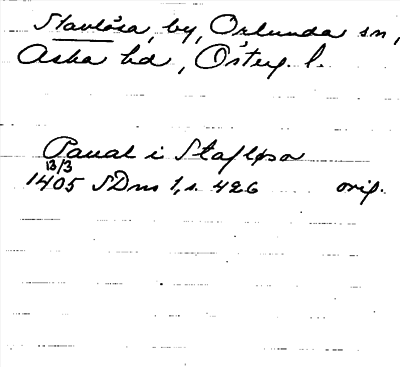 Stavlösa, by, Orlunda sn,
Aska hd, Österg. l.
Panal i Stafløsa
13/3
1405 SDns 1, s. 426 orig.